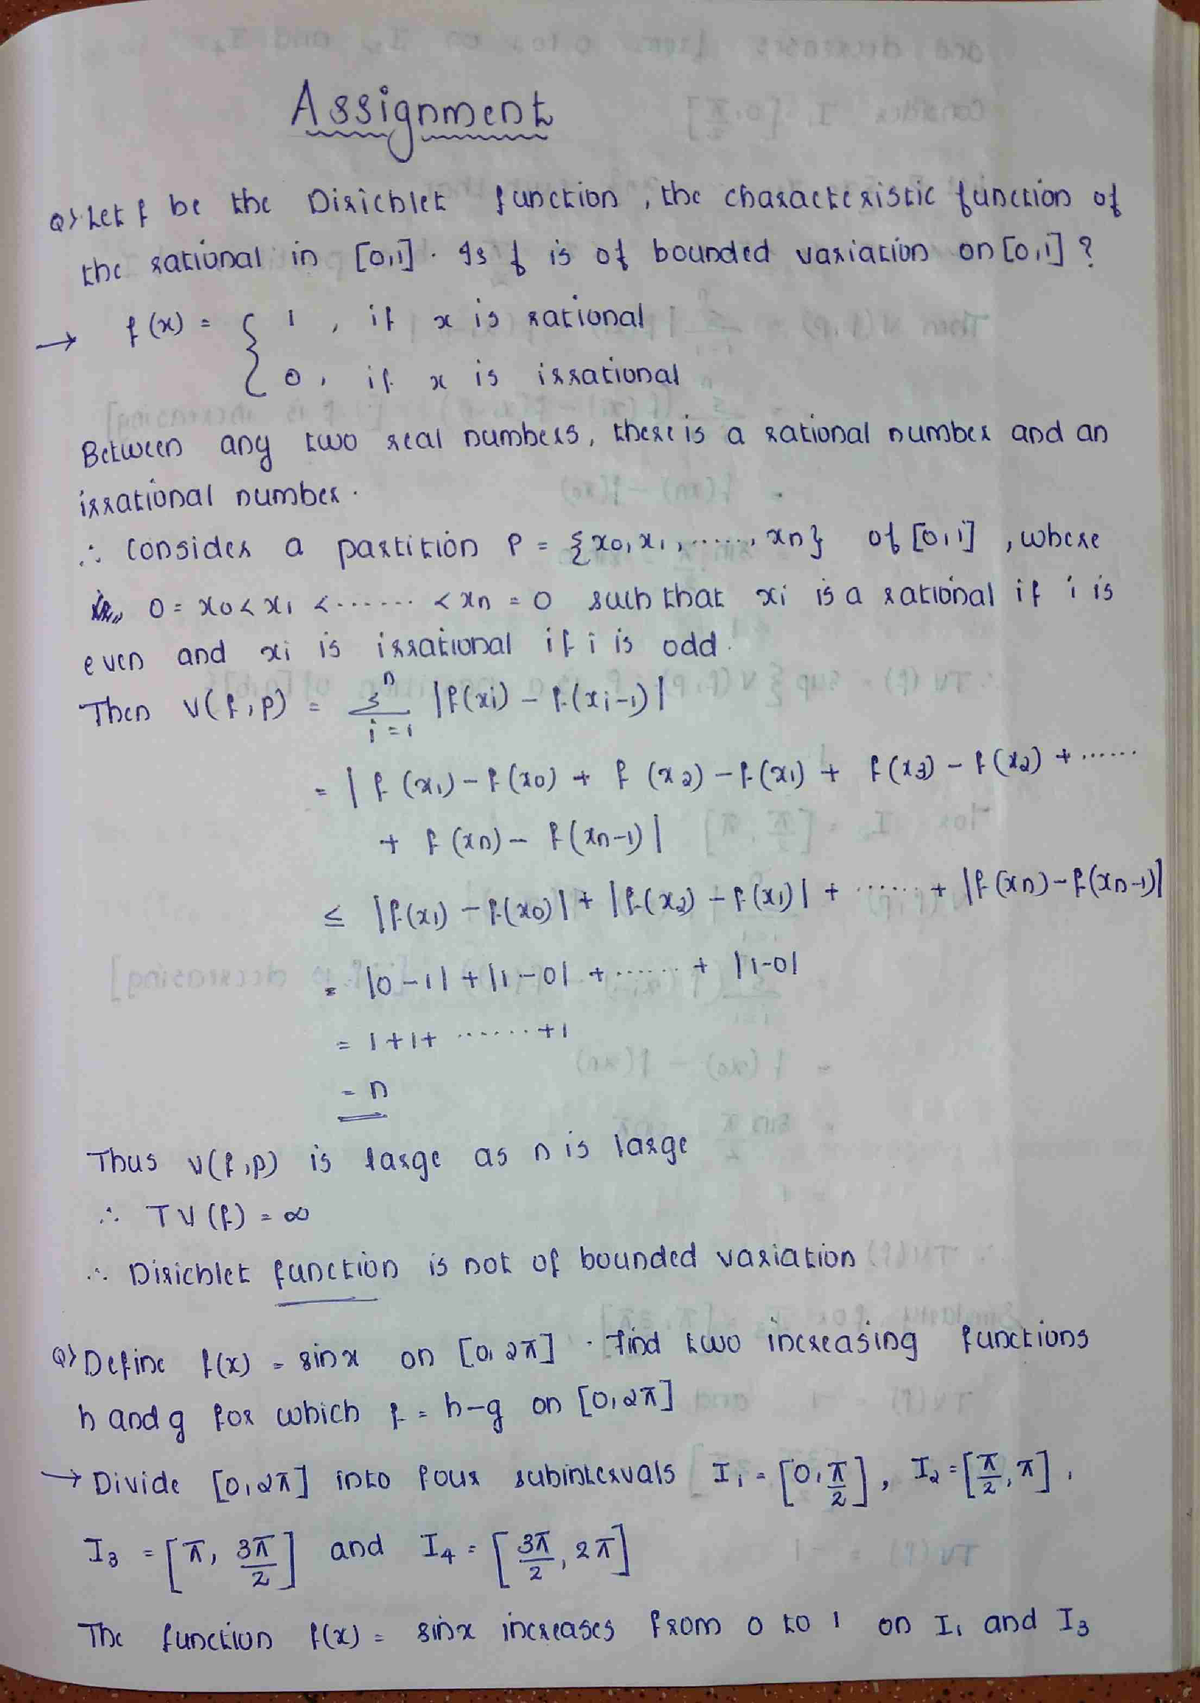 Assignment
Q> Let f be the Dirichlet function, the characteristic function of
the rational in [0,1]. Is f is of bounded variation on [0,1]?
→ f(x) = { 1, if x is rational
0, if x is irrational
Between any two real numbers, there is a rational number and an
irrational number.
∴ Consider a partition P = {x₀, x₁, ......, xn} of [0,1], where
0 = x₀ < x₁ < ....... < xn = 0 such that xi is a rational if i is
even and xi is irrational if i is odd.
Then V(f,p) = Σⁿ i=1 |f(xi) - f(xi-1)|
= |f(x₁) - f(x₀) + f(x₂) - f(x₁) + f(x₃) - f(x₂) + ......
+ f(xn) - f(xn-1)|
≤ |f(x₁) - f(x₀)| + |f(x₂) - f(x₁)| + ...... + |f(xn) - f(xn-1)|
= |0-1| + |1-0| + ...... + |1-0|
= 1+1+ ...... +1
= n
Thus V(f,p) is large as n is large
∴ TV(f) = ∞
∴ Dirichlet function is not of bounded variation
Q> Define f(x) = sinx on [0, 2π]. Find two increasing functions
h and g for which f = h-g on [0, 2π]
→ Divide [0, 2π] into four subintervals I₁ = [0, π/2], I₂ = [π/2, π],
I₃ = [π, 3π/2] and I₄ = [3π/2, 2π]
The function f(x) = sinx increases from 0 to 1 on I₁ and I₃